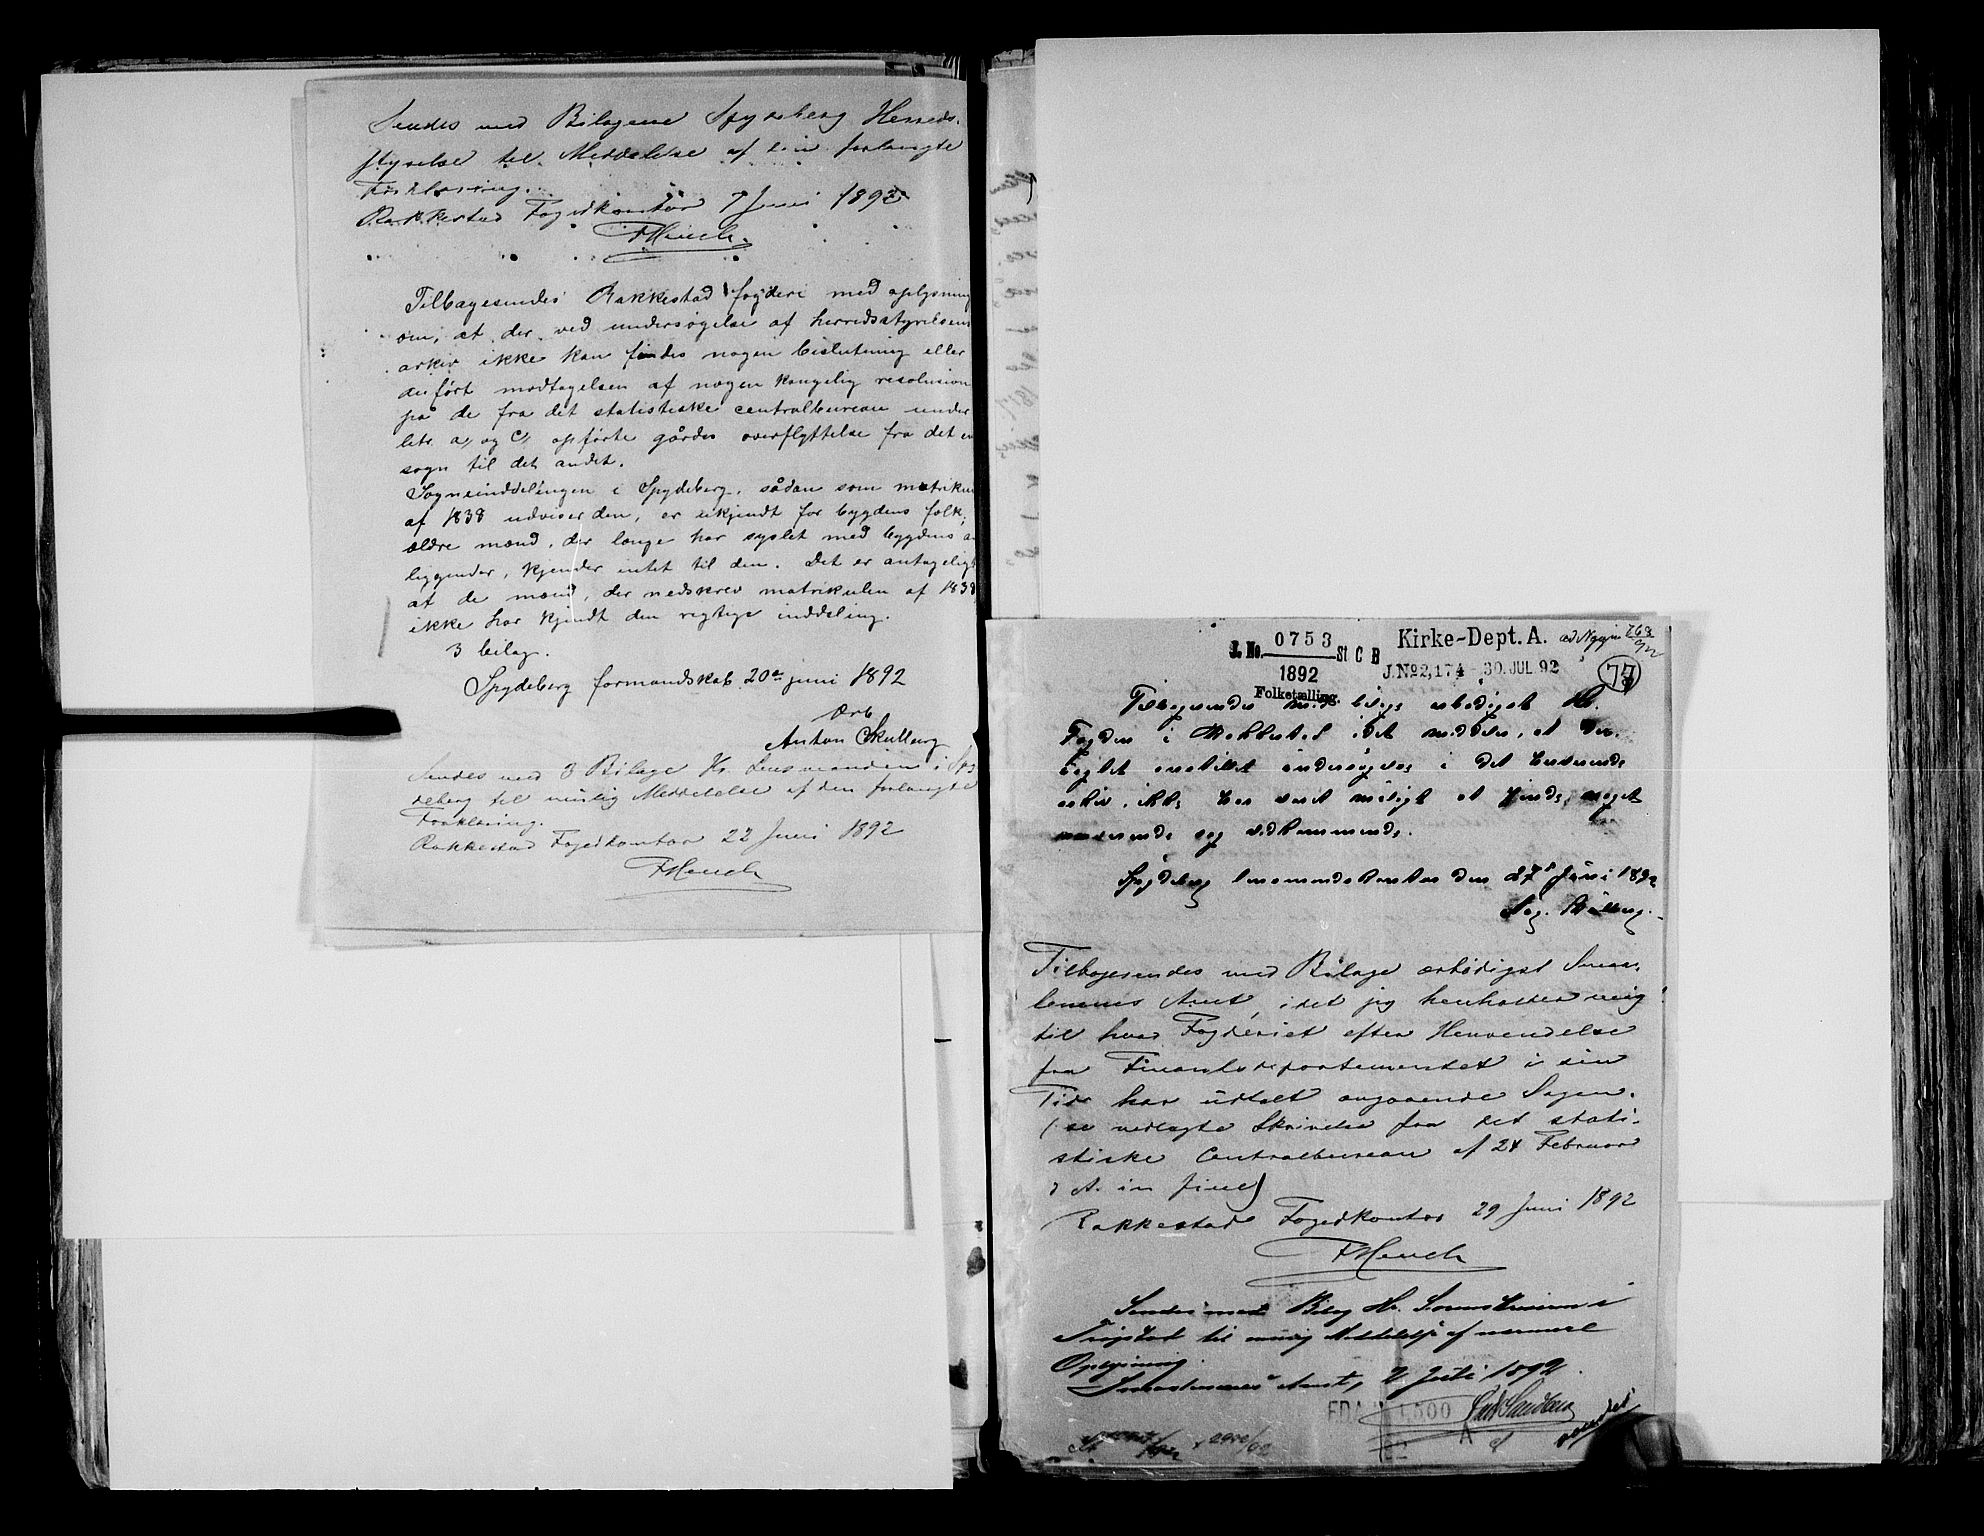 Sendes med Bilagene Spydeberg Herreds-
styrelse til Meddelelse af den forlangte
Forklaring.
Rakkestad Fogedkontor 7 Juni 1892
FHeuch.
Tilbagesendes Rakkestad fogderi med oplysning
om, at der ved undersøgelse af herredsstyrelsens
arkiv ikke kan findes nogen beslutning eller
anført modtagelsen af nogen kongelig resolusion
på de fra det statistiske centralbureau under
litr. a, og c, opførte gårdes overflyttelse fra det e
sogn til det andet.
Sogneinddelingen i Spydeberg, sådan som matrikul
af 1838 udviser den, er ukjendt for bygdens folk;
ældre mænd, der længe har syslet med bygdens a
liggender, kjender intet til den. Det er antageligt
at de mænd, der nedskrev matrikulen af 1838
ikke har kjendt den rigtige inddeling.
3 bilag.
Spydeberg formandskab 20de juni 1892
Ærb
Anton Skulberg
Sendes med 3 Bilage Hr. Lensmanden i Spy-
deberg til mulig Meddelelse af den forlangte
Forklaring.
Rakkestad Fogedkontor 22 Juni 1892
FHeuch
J. No. 0753 St C B
1892
Folketælling.
Kirke-Dept. A.
J.No 2,174 - 30. JUL 92
77
Tilbagesendes med bilag ærbødigst Hr.
Fogden i Rakkestad idet meddeles, at der-
foretagne undersøgelse i det herværende
arkiv, ikke har været muligt at finde noget
nærværende sag vedkommende.
Spydeberg lensmandskontor den 27de Juni 1892
Tilbagesendes med Bilage ærbødigst Smaa-
lenenes Amt, idet jeg henholder mig
til hvad Fogderiet efter Henvendelse
fra Finantsdepartementet i sin
Tid har udtalt angaaende Sagen.
(se vedlagte Skrivelse fra det stati-
stiske Centralbureau af 24 Februar
d A. in fine)
Rakkestad Fogedkontor 29 Juni 1892
FHeuch
Sendes med Bilag Hr. Sorenskriveren i
Trøgstad til mulig Meddelelse af nærmere
Oplysning.
Smaalenenes Amt, 2 Juli 1892.